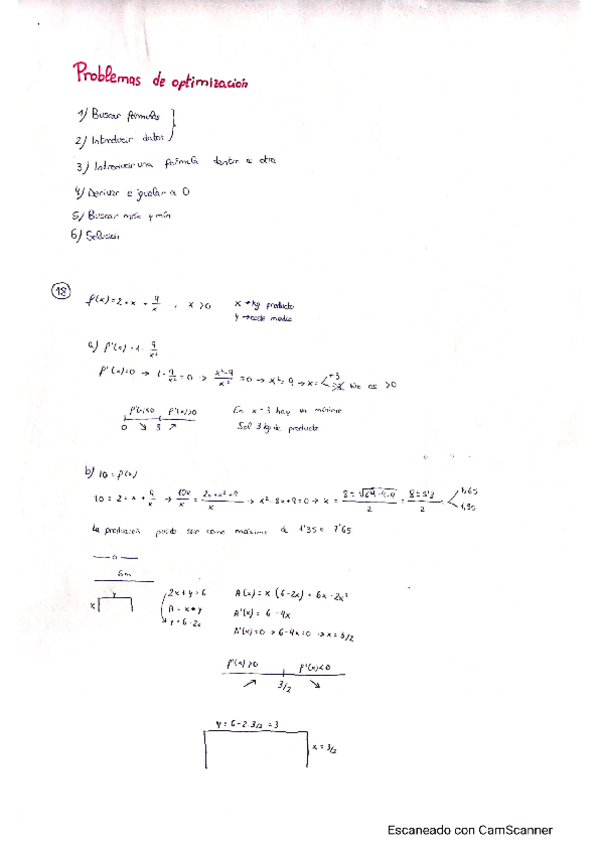 Problemas de optimización
1) Buscar fórmulas
2) Introducir datos
3) Introducir una fórmula dentro de otra
4) Derivar e igualar a 0
5) Buscar máx y mín
6) Solución
18 f(x) = 2 + x + 9/x , x > 0 x → kg producto
y → coste medio
a) f'(x) = 1 - 9/x²
f'(x) = 0 → 1 - 9/x² = 0 → x²-9/x² = 0 → x² = 9 → x = +3
No es > 0
f'(x)<0 f'(x)>0 En x = 3 hay un mínimo
0 ↘ 3 ↗ Sol 3 kg de producto
b) 10 = f(x)
10 = 2 + x + 9/x → 10x/x = 2x + x² + 9/x → x² - 8x + 9 = 0 → x = 8 ± √64-4·9 / 2 = 8 ± 5'3 / 2
La producción puede ser como máximo
6m
y 2x + y = 6 A(x) = x (6 - 2x) = 6x - 2x²
x A = x · y A'(x) = 6 - 4x
y = 6 - 2x A'(x) = 0 → 6 - 4x = 0 → x = 3/2
f'(x) > 0 f'(x) < 0
↗ 3/2 ↘
y = 6 - 2·3/2 = 3
x = 3/2
Escaneado con CamScanner